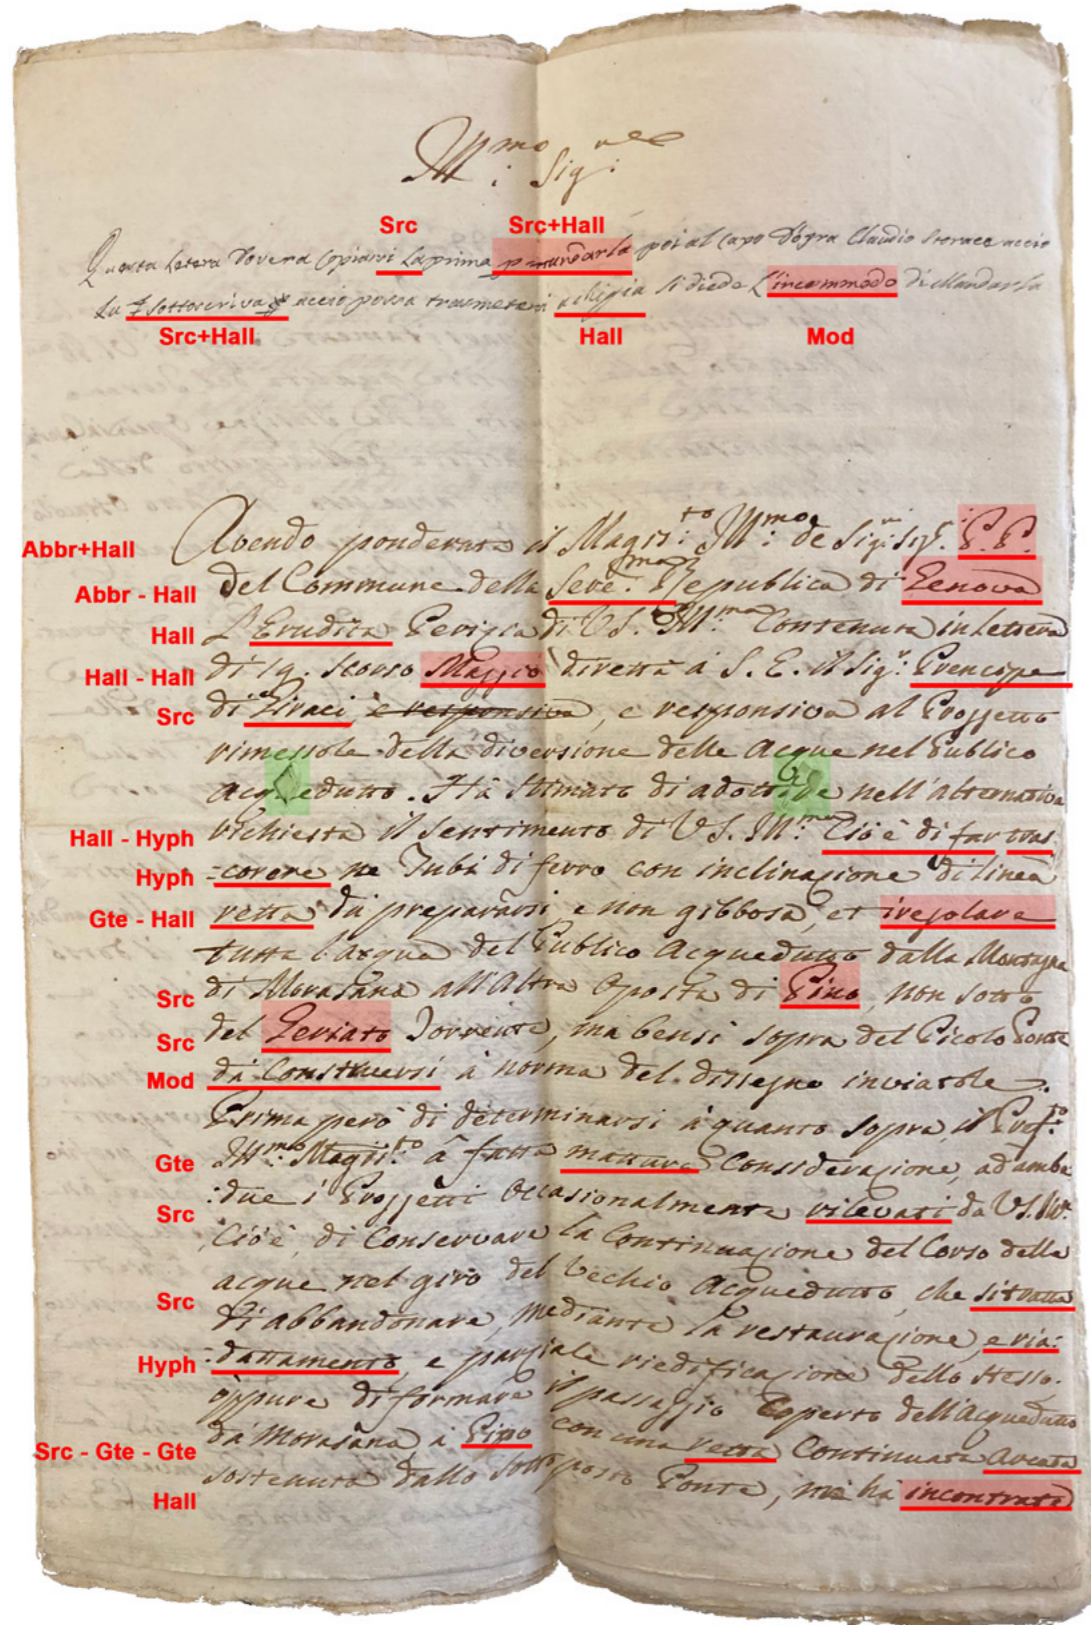 Ill.mo Sig.re
Src Src+Hall
Questa Letera dovera Copiarsi La prima p mandarla poi al Capo d'ogra Claudio Storace accio
La Sottoscriva accio possa trasmetersi a chi gia Si diede L'incommodo Di Mandarla
Src+Hall Hall Mod
Abbr+Hall Avendo ponderato il Magis.to Ill.mo de Sig.ri Sig.ri P.P.
Abbr - Hall del Commune della Sere.ma Republica di Genova
Hall L'Erudita Perizia di V.S. Ill.ma Contenuta in Lettera
Hall - Hall di 19. scorso Maggio diretta à S. E. il Sig.r Prencipe
Src di Ziraci è responsiva, e responsiva al Proggetto
rimessole della diversione delle acque nel Publico
acquedutto. Hà stimato di adottare nell'alternativa
Hall - Hyph richiesta il sentimento di V.S. Ill.ma Cioè di far tras
Hyph =corere ne Tubi di ferro con inclinazione di linea
Gte - Hall retta da prepararsi, e non gibbosa, et iregolare
tutta l'acqua del Publico Acquedutto dalla Montagna
Src di Morasana all'Altra Oposta di Pino, non sotto
Src del Geriato Torrente, ma bensi sopra del Picolo Ponte
Mod da Construersi à norma del dissegno inviatole.
Prima però di determinarsi à quanto sopra, il Pref.to
Gte Ill.mo Magis.to à fatta matura Considerazione, ad ambe
Src :due i Proggetti occasionalmente rilevati da V.S. Ill.
Cioè, di Conservare la Continuazione del Corso delle
Src acque nel giro del Vechio Acquedutto, che si tratta
di abbandonare, mediante la restaurazione, e ria:
Hyph :dattamento, e parziale riedificazione dello stesso.
oppure di formare il passaggio Coperto dell'Acquedutto
Src - Gte - Gte da Morasana à Pino con una retta Continuata Arcata
Hall sostenuta dallo sottoposto Ponte, ma ha incontrate